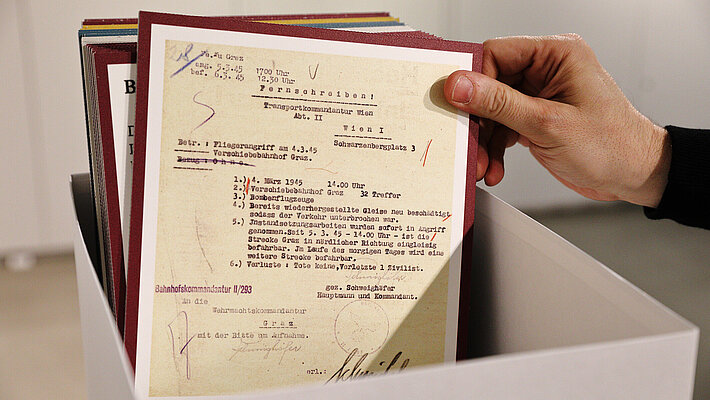 Graz
ang. 5.3.45 1700 Uhr
bef. 6.3.45 12.30 Uhr
Fernschreiben!
Transportkommandantur Wien
Abt. II
Wien I
Schwarzenbergplatz 3
Betr.: Fliegerangriff am 4.3.45
Verschiebebahnhof Graz.
Bezug: Ohne.
1.) 4. März 1945 14.00 Uhr
2.) Verschiebebahnhof Graz 32 Treffer
3.) Bombenflugzeuge
4.) Bereits wiederhergestellte Gleise neu beschädigt
sodass der Verkehr unterbrochen war.
5.) Jnstandsetzungsarbeiten wurden sofort in Angriff
genommen.Seit 5. 3.45 - 14.00 Uhr - ist die
Strecke Graz in nördlicher Richtung eingleisig
befahrbar. Jm Laufe des morgigen Tages wird eine
weitere Strecke befahrbar.
6.) Verluste : Tote keine,Verletzte 1 Zivilist.
gez. Schweighöfer
Hauptmann und Kommandant.
Bahnhofskommandantur II/293
An die
Wehrmachtskommandantur
Graz
mit der Bitte um Aufnahme.
erl.: